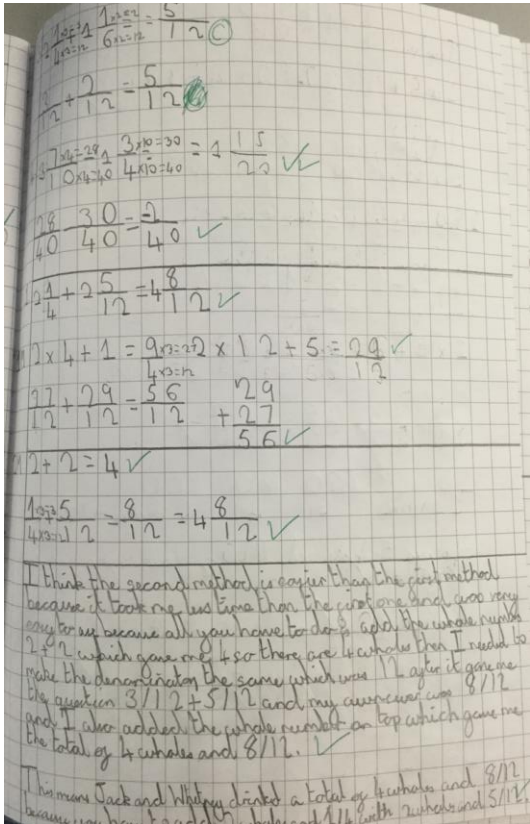 1×3=3 1×2=2 = 5
4×3=12 6×2=12 12
2 = 5
12 + 12 12
7×4=28 3×10=30 = 1 15
10×4=40 4×10=40 20
28 30 = 2
40 40 40
2 1/4 + 2 5/12 = 4 8/12
2 × 4 + 1 = 9×3=27 2 × 12 + 5 = 29
4×3=12 12
27 + 29 = 56 29
12 12 12 + 27
56
2 + 2 = 4
1×3=3 5 = 8 = 4 8
4×3=12 12 12 12
I think the second method is easier than the first method
because it took me less time than the first one and was very
easy to use because all you have to do is add the whole numbers
2+2 which gave me 4 so there are 4 wholes then I needed to
make the denominator the same which was 12 after it gave me
the question 3/12 + 5/12 and my answer was 8/12
and I also added the whole number on top which gave me
the total of 4 wholes and 8/12.
This means Jack and Whitney drinked a total of 4 wholes and 8/12
because you have to add wholes and 1/4 with 2 wholes and 5/12